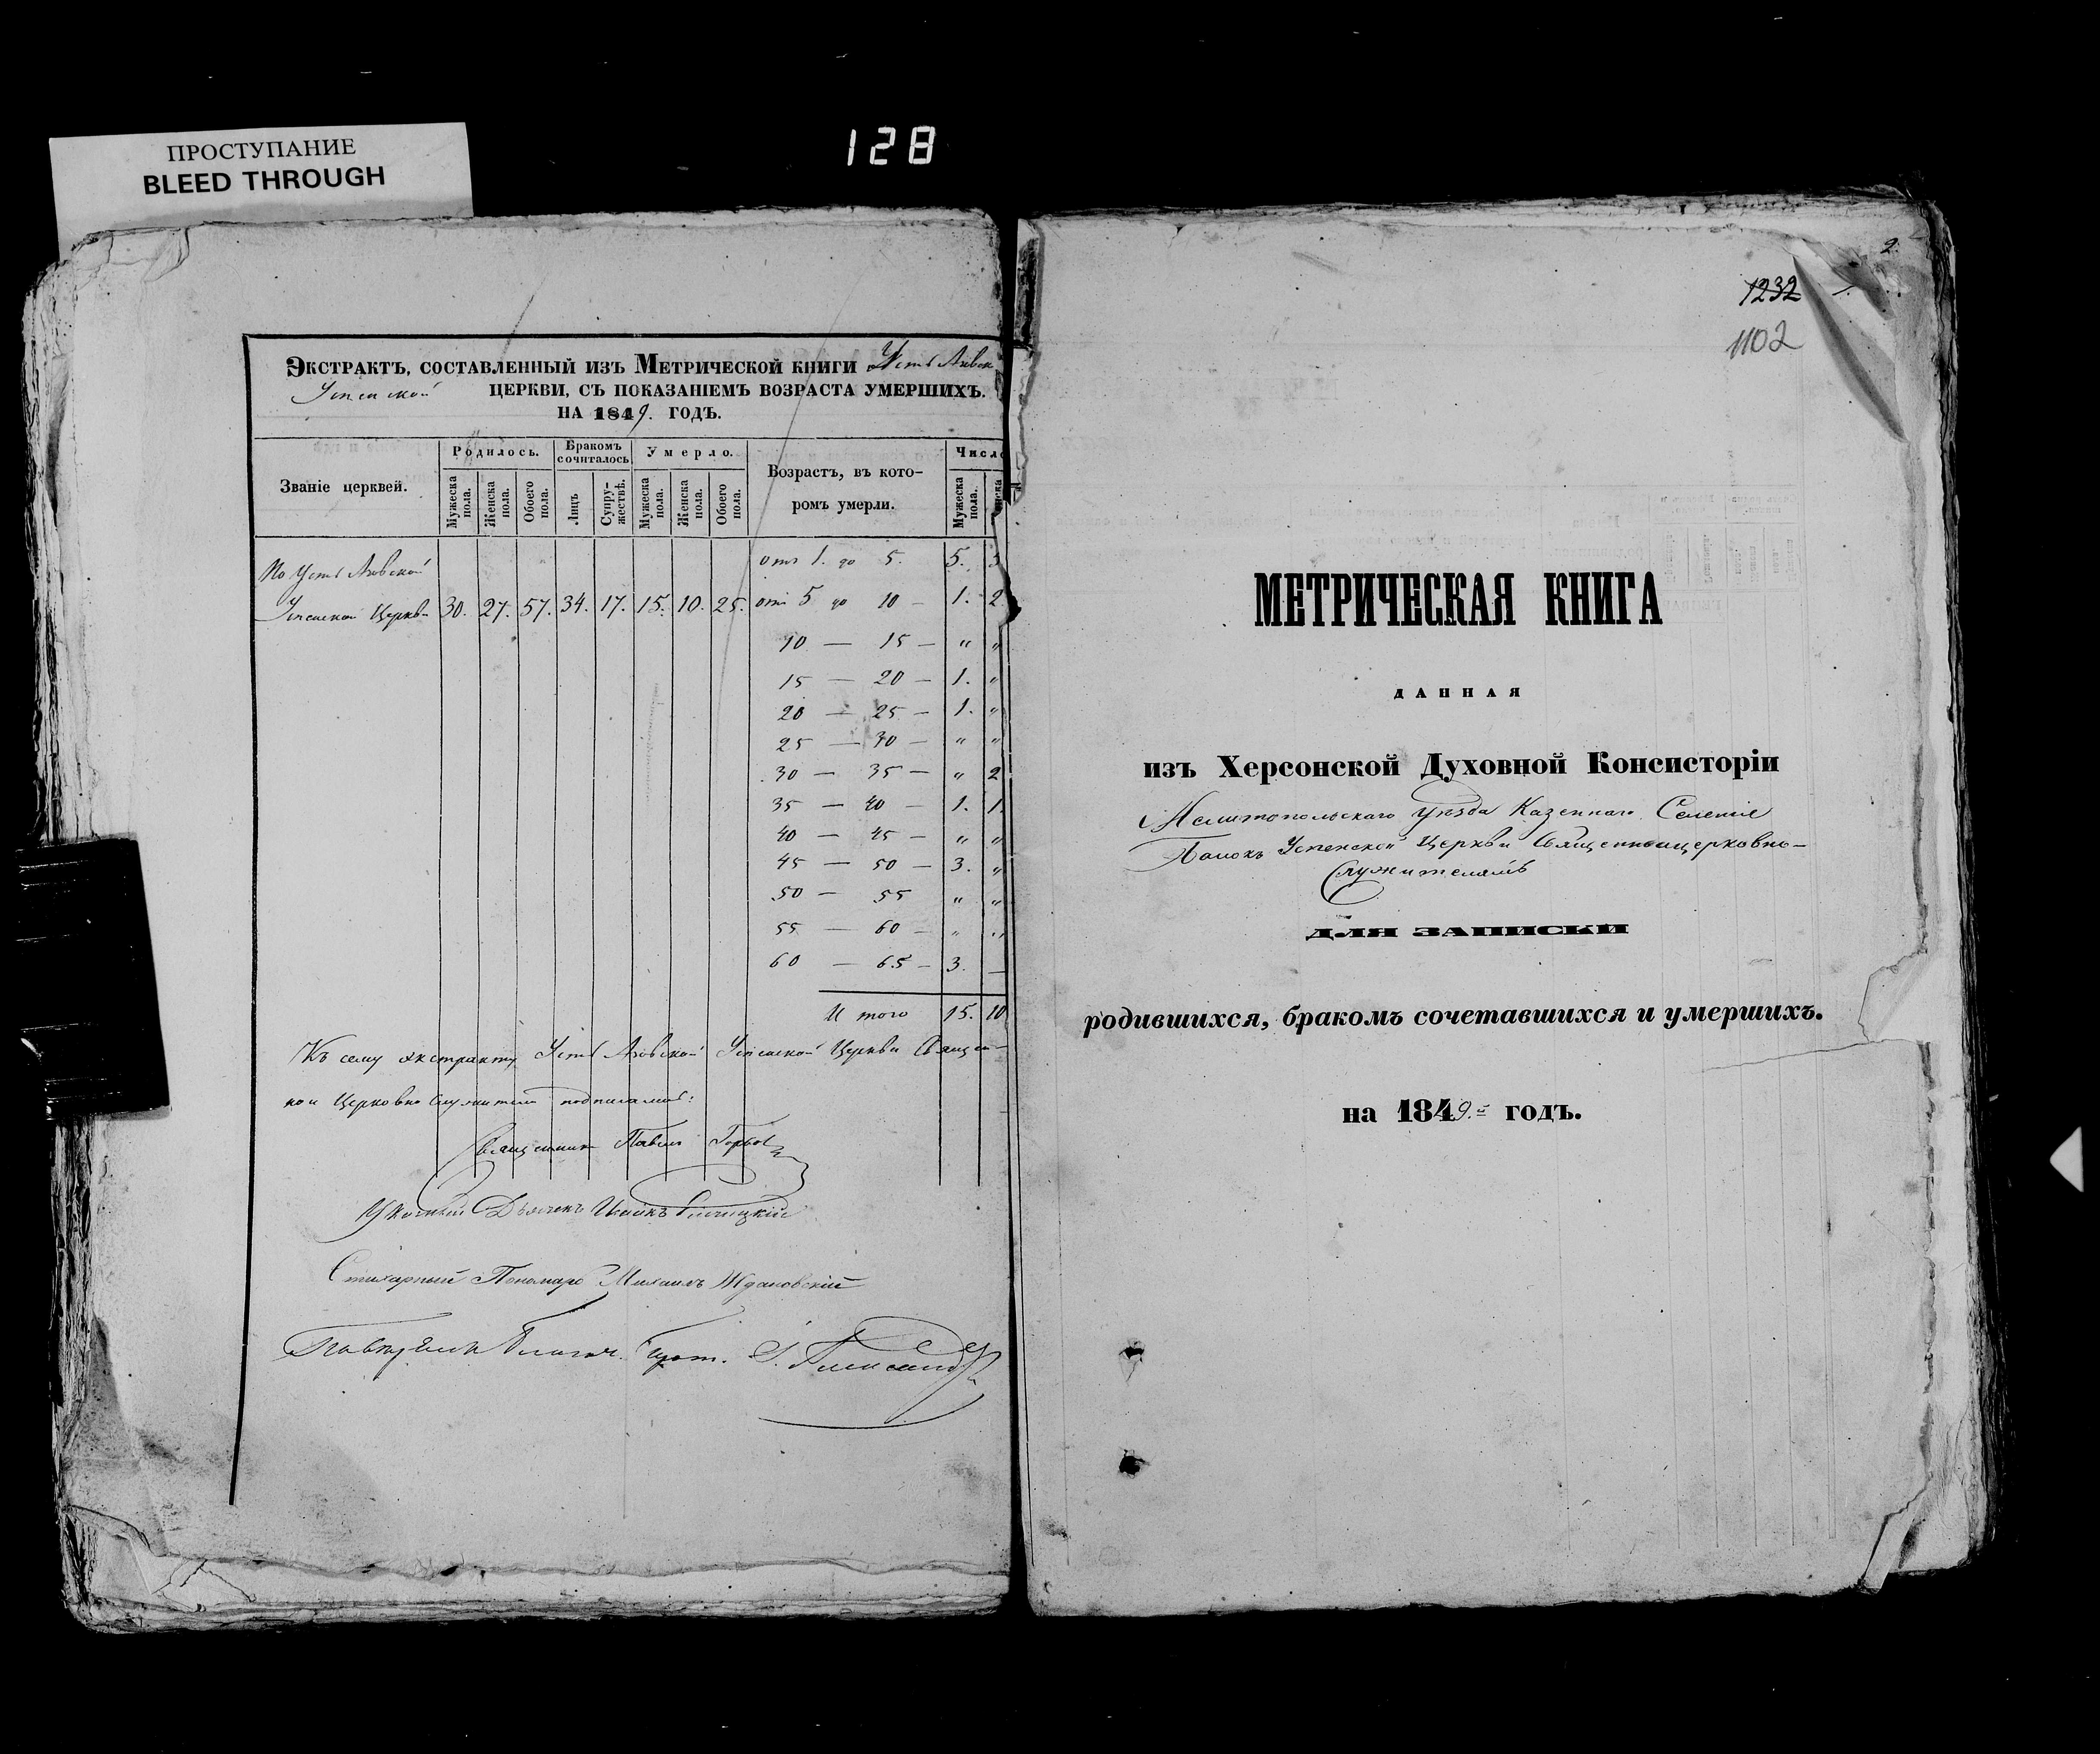 ПРОСТУПАНИЕ
BLEED THROUGH
128
Экстрактъ, составленный изъ Метрической книги Усть Азовск
Успенской церкви, съ показаніемъ возраста умершихъ.
на 1849. годъ.
Званіе церквей.
Родилось.
Бракомъ сочиталось
Умерло.
Возрастъ, въ кото-
ромъ умерли.
Число
Мужеска пола.
Женска пола.
Обоего пола.
Лицъ
Супру-жествъ.
Мужеска пола.
Женска пола.
Обоего пола.
Мужеска пола.
По Усть Азовской
Успенской Церкви 30. 27. 57. 34. 17. 15. 10. 25.
отъ 1. до 5. 5.
отъ 5 до 10 — 1. 2
10 — 15 — „ „
15 — 20 — 1. „
20 — 25 — 1. „
25 — 30 — „ „
30 — 35 — „ 2
35 — 40 — 1. 1.
40 — 45 — „ „
45 — 50 — 3. „
50 — 55 „ „
55 — 60 — „ „
60 — 65 — 3. —
Итого 15. 10
Къ сему экстракту Усть Азовской Успенской Церкви Священ-
но и Церковно служители подписались:
Священник Павелъ
Дьячекъ
Стихарный Пономарь Михаилъ Ждановскій
2.
1232
1102
МЕТРИЧЕСКАЯ КНИГА
ДАННАЯ
изъ Херсонской Духовной Консисторіи
Мелитопольскаго Уѣзда Казеннаго Селенія
Балокъ Успенской Церкви Священноцерковно-
Служителямъ
ДЛЯ ЗАПИСКИ
родившихся, бракомъ сочетавшихся и умершихъ.
на 1849.й годъ.